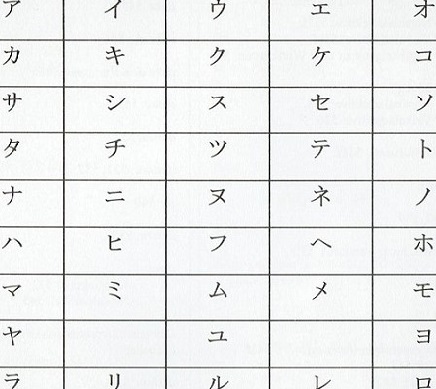 ア イ ウ エ オ
カ キ ク ケ コ
サ シ ス セ ソ
タ チ ツ テ ト
ナ ニ ヌ ネ ノ
ハ ヒ フ ヘ ホ
マ ミ ム メ モ
ヤ ユ ヨ
ラ リ ル レ ロ